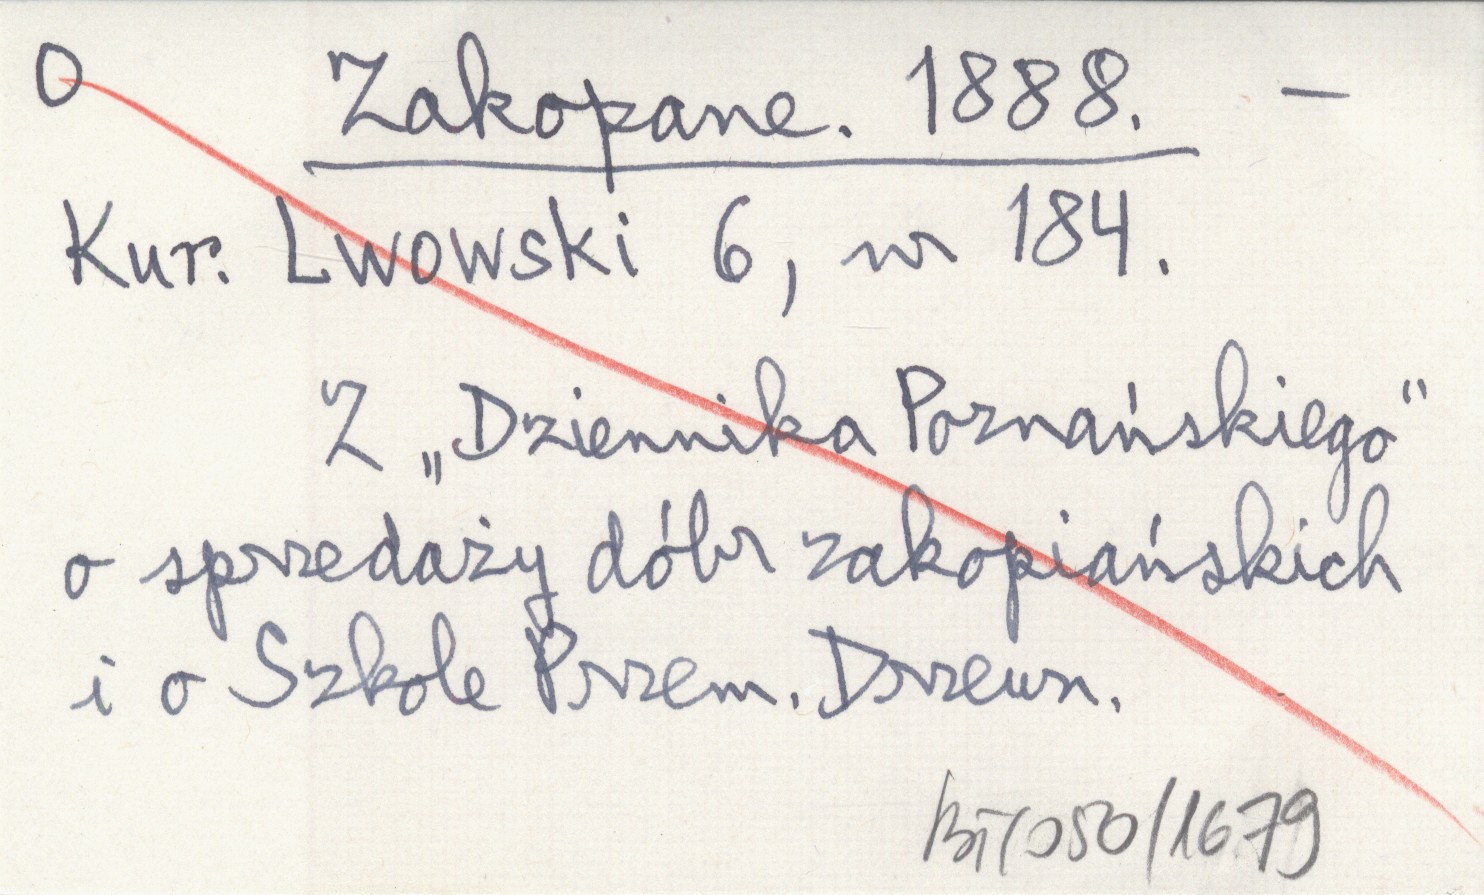 O Zakopane. 1888. —
Kur. Lwowski 6, nr 184.
Z „Dziennika Poznańskiego"
o sprzedaży dóbr zakopiańskich
i o Szkole Przem. Drzewn.
BT/050/1679